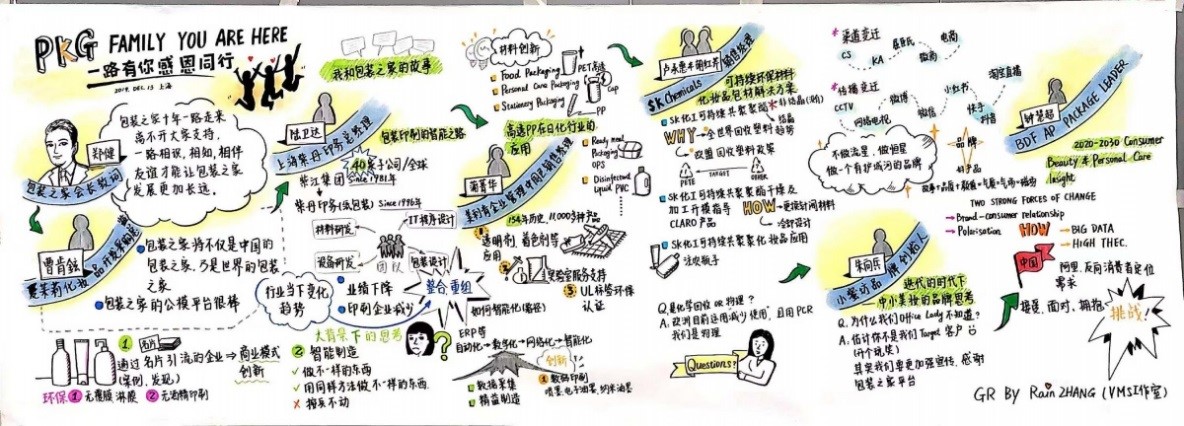 PKG FAMILY YOU ARE HERE
一路有你感恩同行
2019. DEC. 13 上海
包装之家十年一路走来
离不开大家支持,
一路相识,相知,相伴
友谊才能让包装之家
发展更加长远。
郑健
包装之家会长致词
曹肯铉
包装之家将不仅是中国的
包装之家,乃是世界的包装
之家
包装之家的公模平台很棒
① 名片
通过名片引流的企业 ⇒ 商业模式
创新
(案例、发现)
环保 ① 无覆膜 淋膜 ② 无油精印刷
我和包装之家的故事
陆卫达
包装印刷的智能之路
40家子公司/全球
紫江集团 Since 1981年
紫丹印务(纸包装) Since 1996年
IT程序设计
材料研发
设备研发
团队
包装设计
行业当下变化
趋势
业绩下降
印刷企业减少
整合,重组
大背景下的思考
② 智能制造
✓ 做不一样的东西
✓ 用同样方法做不一样的东西
✗ 按兵不动
如何智能化
ERP等
自动化→数字化→网络化→智能化
数据采集
精益制造
创新
材料创新
Food Packaging
Personal Care Packaging
Stationary Packaging
PET
Cap
PP
高透PP在日化行业的
应用
Ready meal
Packaging
OPS
Disinfected
Liquid PVC
154年历史 11,000多种产品
① 透明剂、着色剂等
应用
② 实验室服务支持
③ UL标签环保
认证
SK Chemicals
可持续环保材料
化妆品包材解决方案
SK化工可持续共聚聚酯
WHY → 全世界回收塑料趋势
欧盟回收塑料政策
PETE
TARGET
OTHER
SK化工可持续共聚聚酯干燥及
加工开模指导 HOW
CLARO 产品
SK化工可持续共聚聚化妆品应用
注吹瓶子
Q. 是化学回收 OR 物理?
我们是物理
Questions?
* 渠道变迁
CS
KA
屈臣氏
微商
电商
* 传播变迁
CCTV
网络电视
微博
微信
小红书
快手
抖音
淘宝直播
不做流星,做恒星
做一个有护城河的品牌
品牌
好产品
朱向兵
迭代的时代下
中小美妆的品牌思考
Q. 为什么我们Office Lady不知道?
A. 估计你不是我们Target 客户
(开个玩笑)
其实我们要更加强宣传,感谢
包装之家平台
钟慧超
BDF AP PACKAGE LEADER
2020-2030 Consumer
Beauty & Personal Care
Insight
TWO STRONG FORCES OF CHANGE
→ Brand-consumer relationship
→ Polarisation
HOW
→ BIG DATA
→ HIGH THEC.
中国
阿里,反向消费者定位
需求
接受,面对,拥抱
挑战!
GR BY Rain ZHANG (VMS工作室)